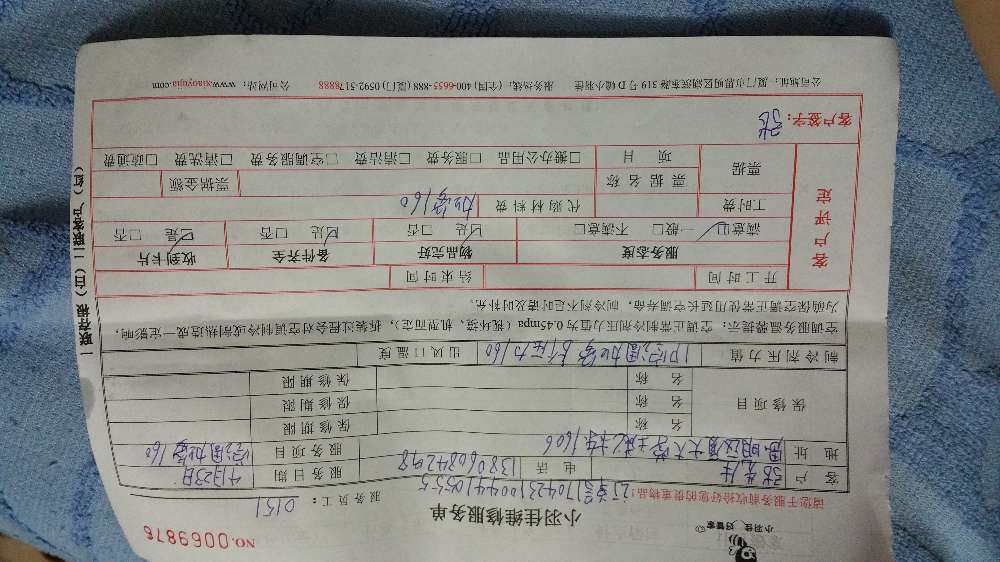 小羽佳 好管家
NO.0069876
小羽佳维修服务单
服务员工：0151
请您于服务前收拾好您的贵重物品！
订单号1704231004410555
客户 张先生 电话 13806084298 服务日期 4月23日
地址 服务项目 空调加雪160
保修项目 名称 保修期限
名称 保修期限
名称 保修期限
制冷剂压力值 出风口温度
空调服务温馨提示：空调正常制冷和压力值为0.45mpa（视环境、机型而定），拆装过程会对空调制冷或制热造成一定影响，
为确保空调正常使用延长空调寿命，制冷剂不足时请及时补充。
客户评定
开工时间 结束时间
服务态度 物品完好 备件齐全 收到卡片
满意☑ 一般□ 不满意□ ☑是 □否 ☑是 □否 ☑是 □否
工时费 代购材料费 加雪160
票据 票据名称 票据金额
项目 □搬办公用品 □服务费 □清洁费 □空调服务费 □清洗费 □疏通费
客户签字：张
公司地址：厦门市思明区湖滨东路319号D幢小羽佳 服务热线：400-6655-888（全国）（厦门）0592-5178888 公司网站：www.xiaoyujia.com
一联存根（白）二联客户（红）